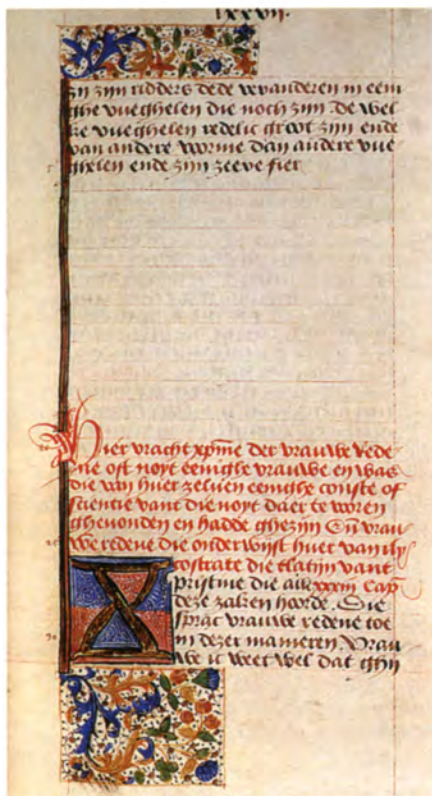 lxxvij.
zij zijn ridders dede veranderen in eeni
ghe vueghelen die noch zijn De wel
ke vueghelen redelic groot zijn ende
van andere vorme dan andere vue
5 ghelen ende zijn zeere fier
Hier vracht xpīne der vrauwe Rede
ne oft noyt eenighe vrauwe en was
die van huer zeluen eenighe conste of
sciencie vant die noyt daer te voren
gheuonden en hadde ghezijn Eñ vrau
25 we redene die onderwijst huer van ny
costrate die tlatijn vant
Xpristine die alle xxxiij Cap̄
deze zaken hoorde. Die
sprac vrauwe redene toe
30 in dezer manieren. Vrau
we ic weet wel dat ghij